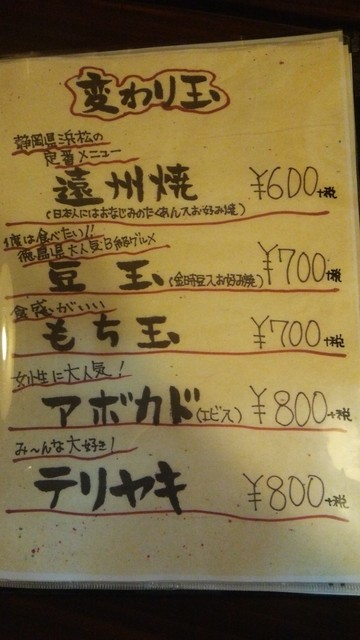 変わり玉
静岡県浜松の
定番メニュー
遠州焼 ¥600+税
(日本人にはおなじみのたくあん入お好み焼)
1度は食べたい!!
徳島県大人気B級グルメ
豆玉(金時豆入お好み焼) ¥700+税
食感がいい
もち玉 ¥700+税
女性に大人気!
アボカド(エビス) ¥800+税
み～んな大好き!
テリヤキ ¥800+税